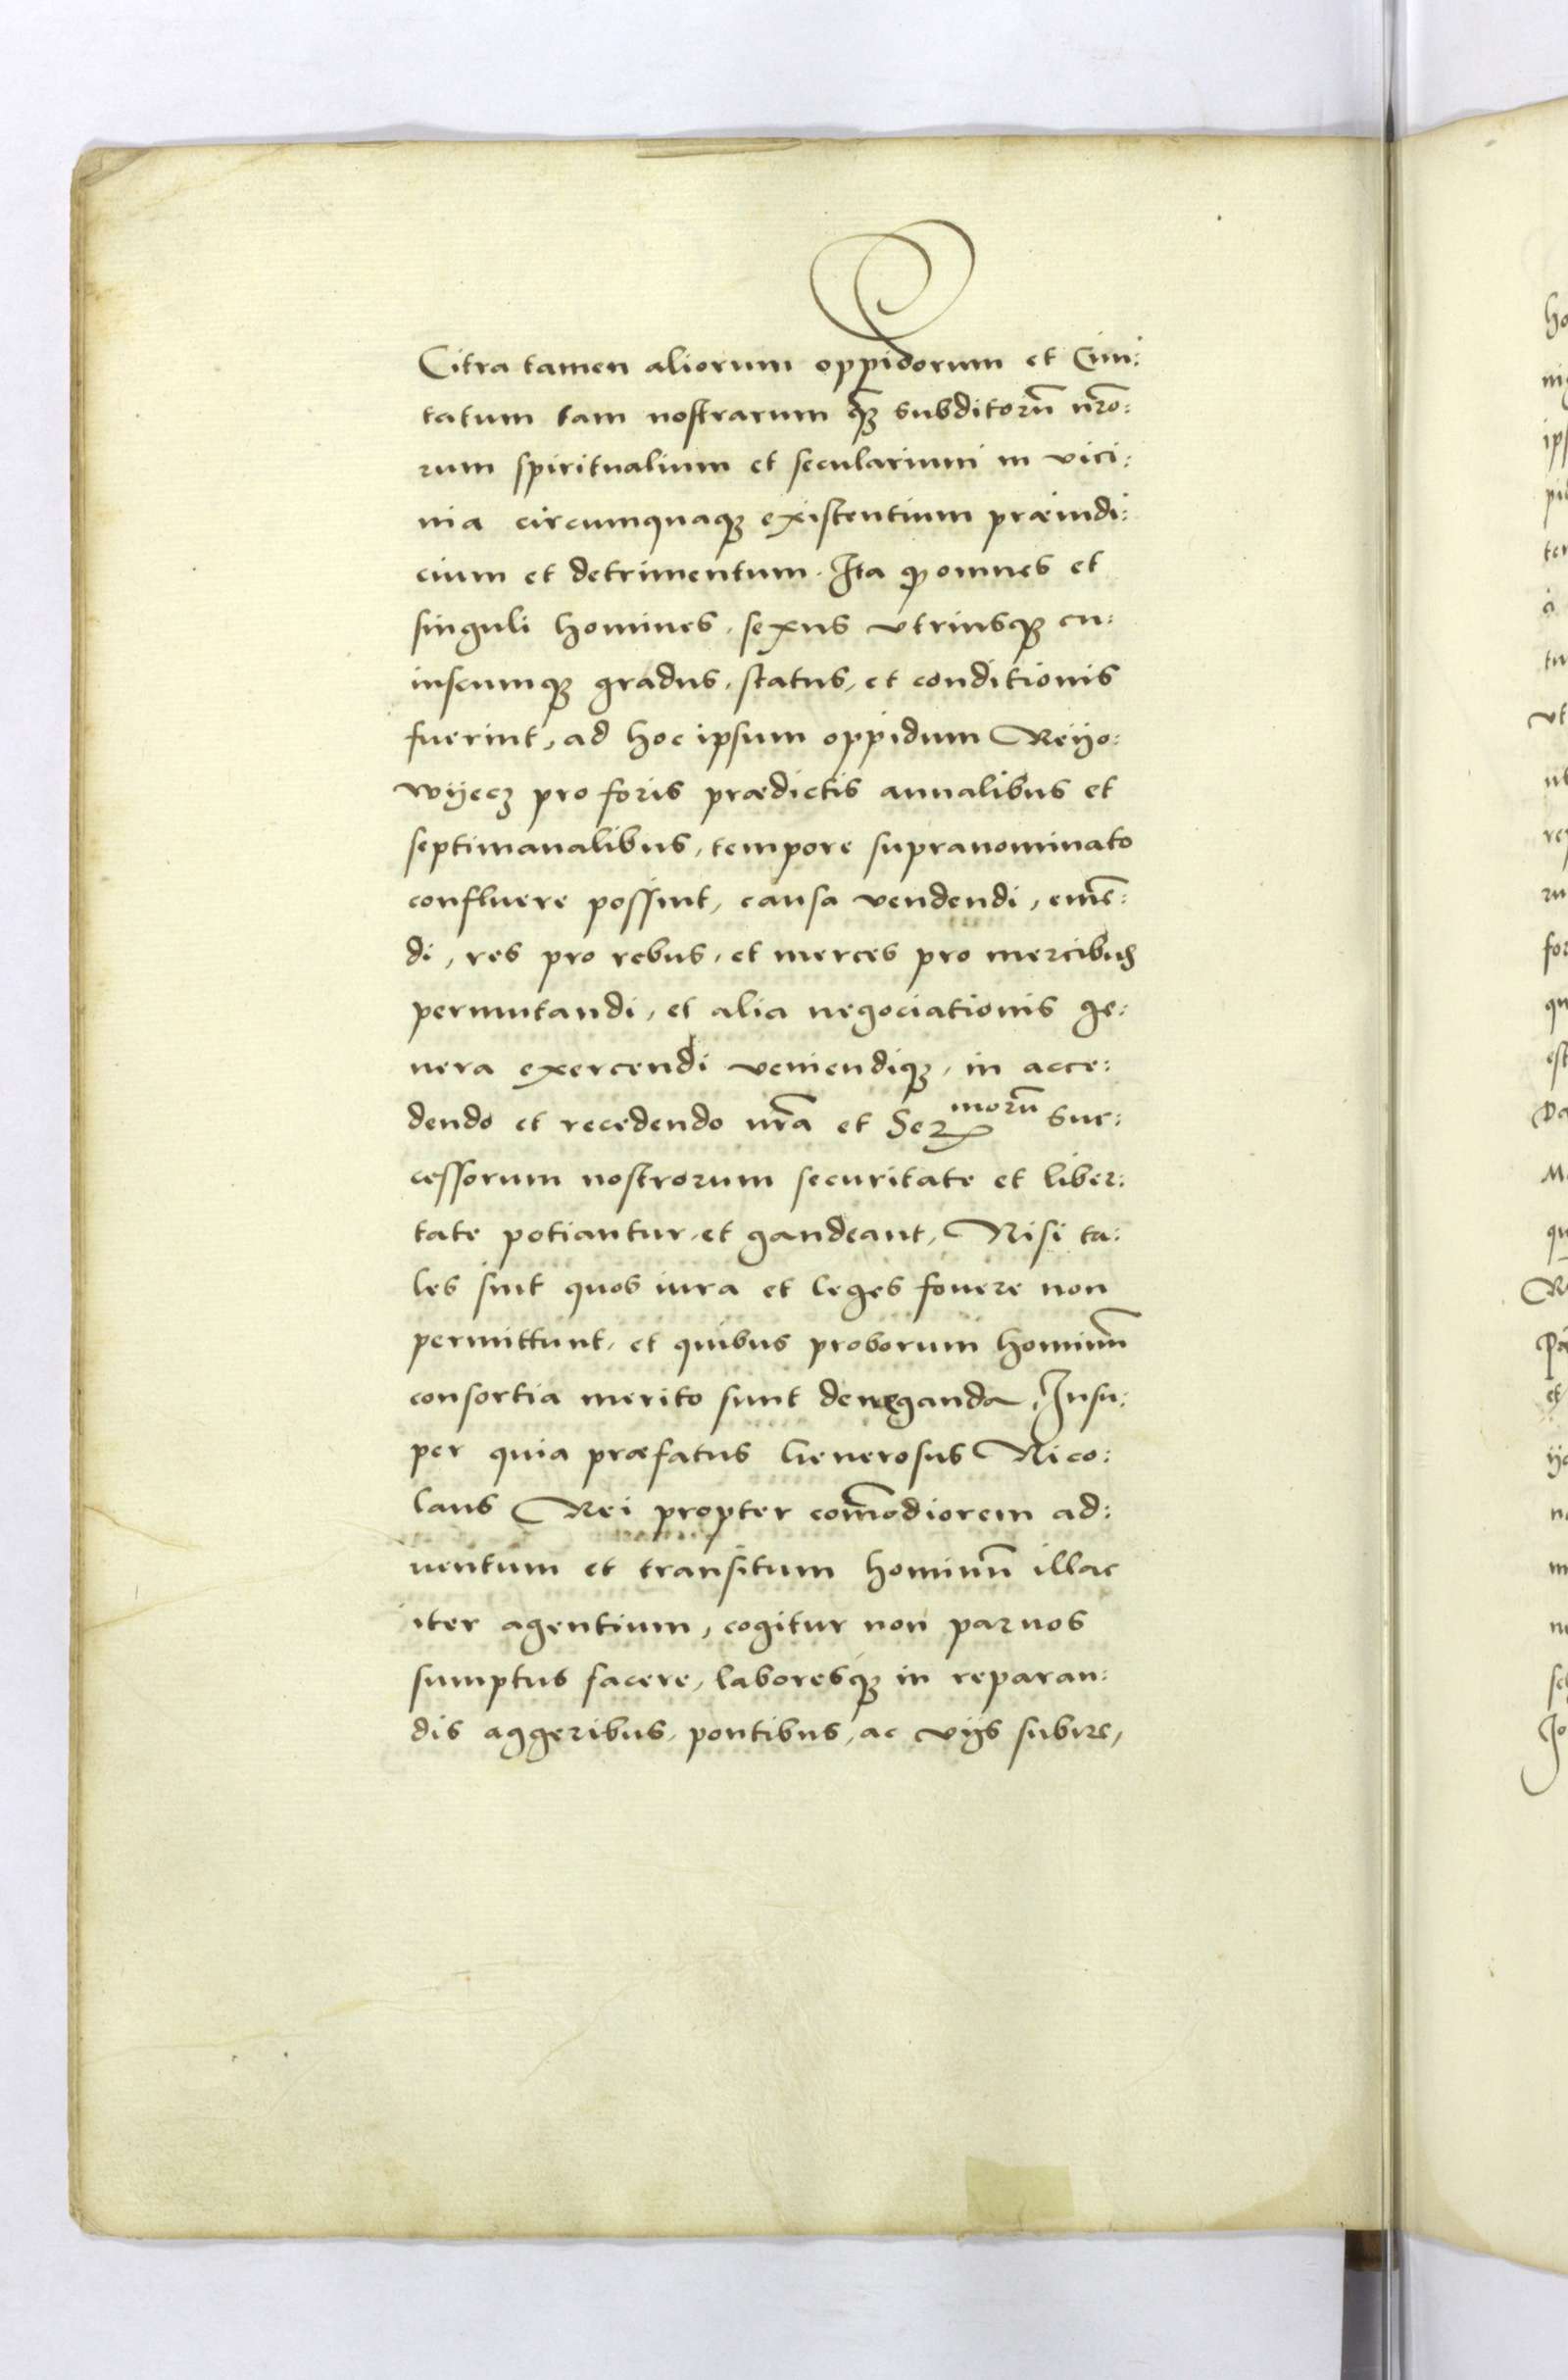 Citra tamen aliorum oppidorum et Ciui:
tatum tam nostrarum q̃ꝫ subditorũ nr̃o:
rum spiritualium et secularium in vici:
nia circumquaqꝫ existentium præiudi:
cium et detrimentum. Ita ꝙ omnes et
singuli homines, sexus vtriusqꝫ cu:
iuscumqꝫ gradus, status, et conditionis
fuerint, ad hoc ipsum oppidum Reijo:
wijecz pro foris prædictis annalibus et
septimanalibus, tempore supranominato
confluere possint, causa vendendi, emẽ:
di, res pro rebus, et merces pro mercibus
permutandi, et alia negociationis ge:
nera exercendi veniendiqꝫ, in acce:
dendo et recedendo nr̃a et Ser morũ Suc:
cessorum nostrorum securitate et liber:
tate potiantur, et gaudeant, Nisi ta:
les sint quos iura et leges fouere non
permittunt, et quibus proborum hominũ
consortia merito sunt deneganda, Insu:
per quia præfatus Generosus Nico:
laus Rei propter com̃odiorem ad:
uentum et transitum hominũ illac
iter agentium, cogitur non paruos
sumptus facere, laboresqꝫ in reparan:
dis aggeribus, pontibus, ac vijs subire,